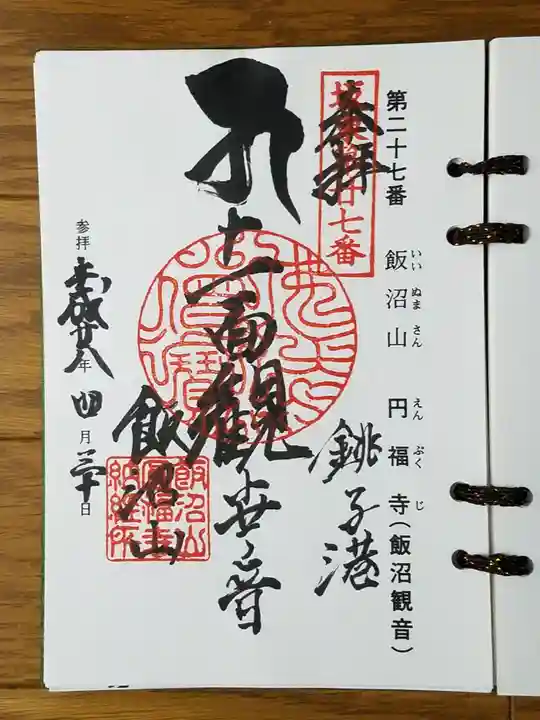 第二十七番 飯沼山 円福寺(飯沼観音)
いいぬまさん えんぷくじ
奉拝
坂東第廿七番
銚子港
十一面観世音
飯沼山
飯沼山
円福寺
納経所
参拝 平成廿八年 四月三十日